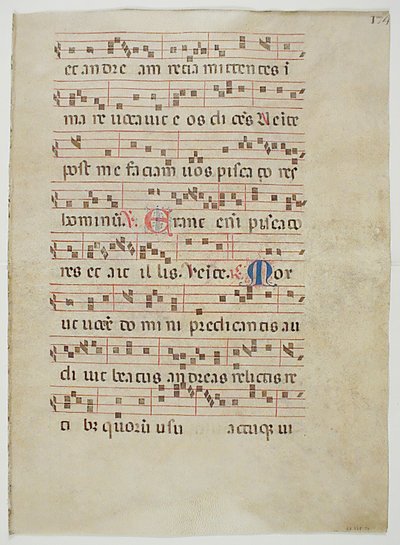 174
et andre am recia mittentes i
ma re vocavit e os dicēs Veīte
post me faciam vos pisca to res
hominū. V. Erant eni piscato
res et ait il lis. Veīte. R. Mox
ut vocē do mi ni predicantis au
di vit beatus andreas relictis re
ti br quorū usu actuq vi